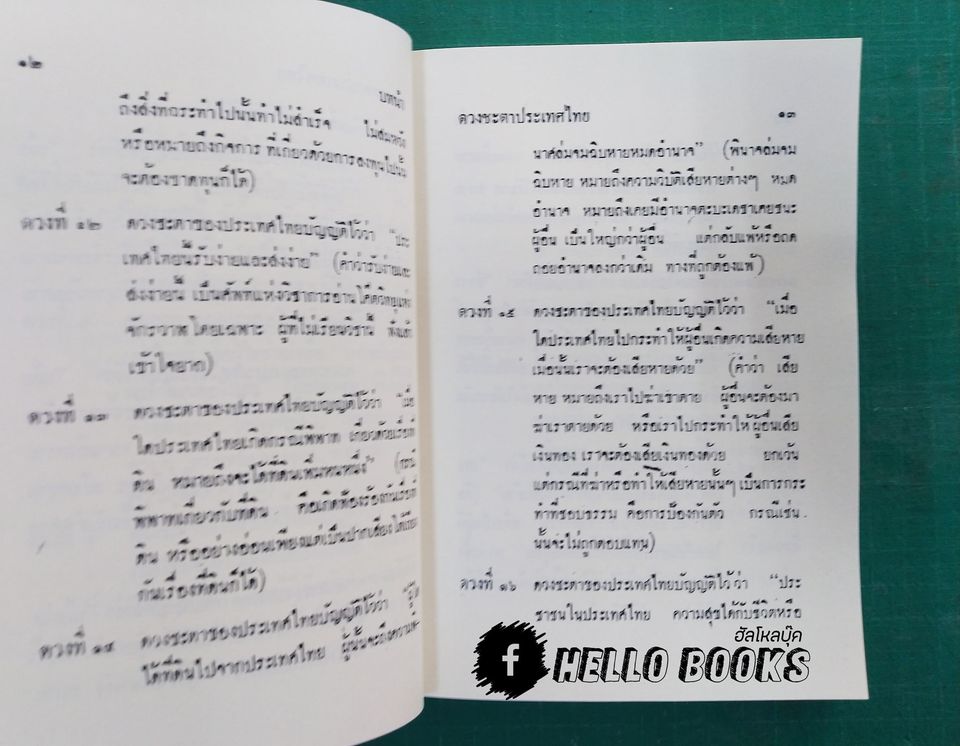 ๑๒
บทนำ
ถึงสิ่งที่กระทำไปนั้นทำไม่สำเร็จ ไม่สมหวัง
หรือหมายถึงกิจการ ที่เกี่ยวด้วยการลงทุนไปนั้น
จะต้องขาดทุนก็ได้)
ดวงที่ ๑๒ ดวงชะตาของประเทศไทยบัญญัติไว้ว่า "ประ
เทศไทยนี้รับง่ายและส่งง่าย" (คำว่ารับง่ายและ
ส่งง่ายนี้ เป็นศัพท์แห่งวิชาการอ่านโค๊ดวิทยุแห่ง
จักรวาฬโดยเฉพาะ ผู้ที่ไม่เรียนวิชานี้ ฟังแล้ว
เข้าใจยาก)
ดวงที่ ๑๓ ดวงชะตาของประเทศไทยบัญญัติไว้ว่า "เมื่อ
ใดประเทศไทยเกิดกรณีพิพาท เกี่ยวด้วยเรื่องที่
ดิน หมายถึงจะได้ที่ดินเพิ่มหนหนึ่ง" (กรณี
พิพาทเกี่ยวกับที่ดิน คือเกิดฟ้องร้องกันเรื่องที่
ดิน หรืออย่างอ่อนเพียงแต่เป็นปากเสียงโต้เถียง
กันเรื่องที่ดินก็ได้)
ดวงที่ ๑๔ ดวงชะตาของประเทศไทยบัญญัติไว้ว่า "ผู้ใด
ได้ที่ดินไปจากประเทศไทย ผู้นั้นจะถึงความพิ
ดวงชะตาประเทศไทย ๑๓
นาศล่มจมฉิบหายหมดอำนาจ" (พินาจล่มจม
ฉิบหาย หมายถึงความวิบัติเสียหายต่างๆ หมด
อำนาจ หมายถึงเคยมีอำนาจตะบะเดชาเคยชนะ
ผู้อื่น เป็นใหญ่กว่าผู้อื่น แต่กลับแพ้หรือถด
ถอยอำนาจลงกว่าเดิม ทางที่ถูกต้องแพ้)
ดวงที่ ๑๕ ดวงชะตาของประเทศไทยบัญญัติไว้ว่า "เมื่อ
ใดประเทศไทยไปกระทำให้ผู้อื่นเกิดความเสียหาย
เมื่อนั้นเราจะต้องเสียหายด้วย" (คำว่า เสีย
หาย หมายถึงเราไปฆ่าเขาตาย ผู้อื่นจะต้องมา
ฆ่าเราตายด้วย หรือเราไปกระทำให้ผู้อื่นเสีย
เงินทอง เราจะต้องเสียเงินทองด้วย ยกเว้น
แต่กรณีที่ฆ่าหรือทำให้เสียหายนั้นๆ เป็นการกระ
ทำที่ชอบธรรม คือการป้องกันตัว กรณีเช่น
นั้นจะไม่ถูกตอบแทน)
ดวงที่ ๑๖ ดวงชะตาของประเทศไทยบัญญัติไว้ว่า "ประ
ชาชนในประเทศไทย ความสุขได้กับชีวิตหรือ
ฮัลโหลบุ๊ค
f HELLO BOOKS